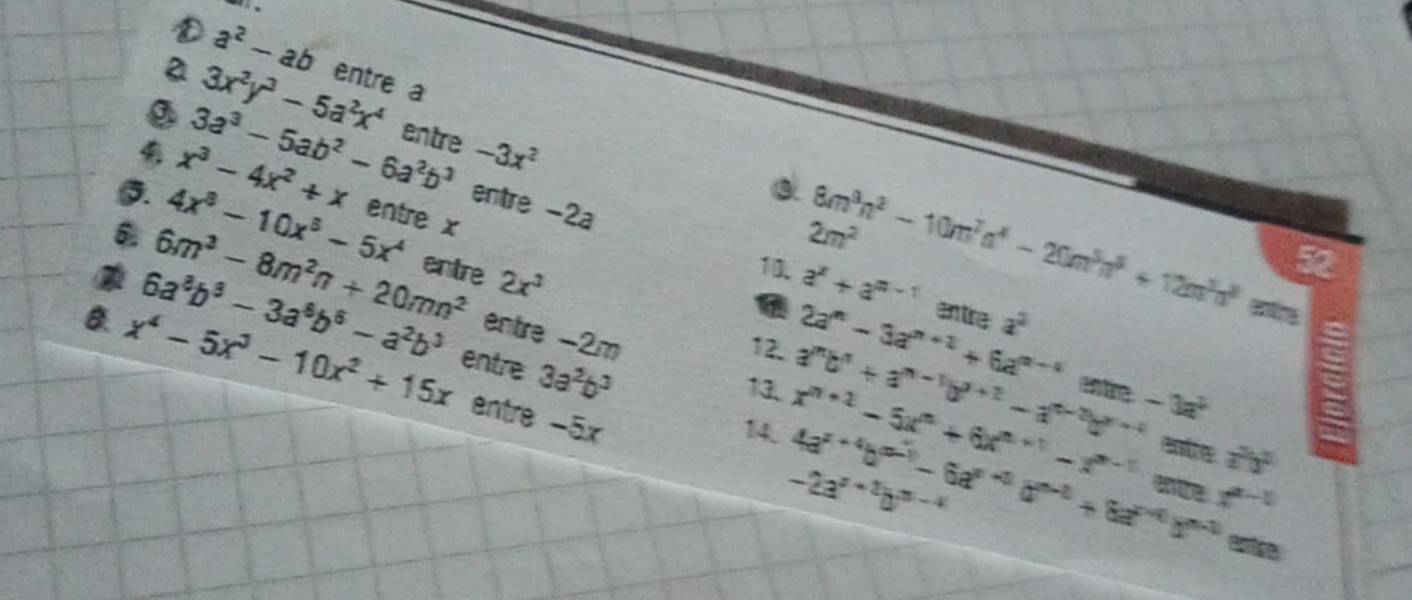 1. a² – ab entre a
2. 3x²y³ – 5a²x⁴ entre –3x²
3. 3a³ – 5ab² – 6a²b³ entre –2a
4. x³ – 4x² + x entre x
5. 4x⁸ – 10x⁶ – 5x⁴ entre 2x³
6. 6m³ – 8m²n + 20mn² entre –2m
7. 6a⁸b⁸ – 3a⁶b⁶ – a²b³ entre 3a²b³
8. x⁴ – 5x³ – 10x² + 15x entre –5x
9. 8m⁹n² – 10m⁷n⁴ – 20m⁵n⁶ + 12m³n⁸ entre
2m²
10. aˣ + aᵐ⁻¹ entre a²
2aᵐ – 3aᵐ⁺² + 6aᵐ⁺⁴ entre – 3a³
12. aᵐbⁿ + aᵐ⁻¹bⁿ⁺² – aᵐ⁻²bⁿ⁺⁴ entre a²b³
13. xᵐ⁺² – 5xᵐ + 6xᵐ⁺¹ – xᵐ⁻¹ entre
14. 4aˣ⁺⁴bᵐ⁻¹ – 6aˣ⁺³ + 8aˣ⁺² entre
–2aˣ⁺²bᵐ⁻⁴
52
Ejercicio